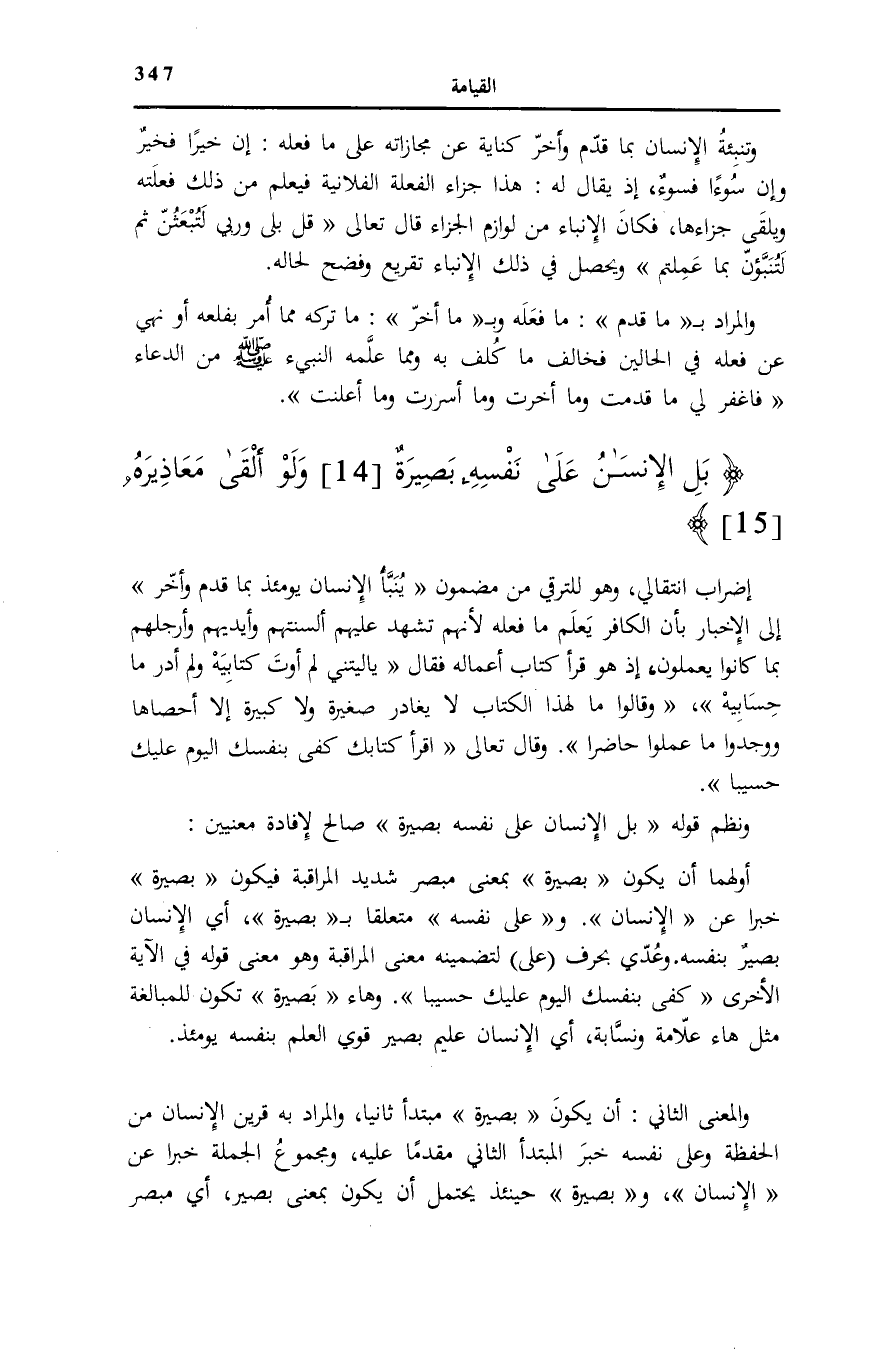 347
القيامة
وتنبِئةُ الإنسان بما قدّم وأخرّ كناية عن مجازاته على ما فعله : إن خيرًا فخيرٌ
وإن سُوءًا فسوءٌ، إذ يقال له : هذا جزاء الفعلة الفلانية فيعلم من ذلك فعلَته
ويلقَى جزاءها، فكانَ الإنباء من لوازم الجزاء قال تعالى « قل بلى وربي لَتُبْعَثُنّ ثم
لَتُنَبَّؤنّ بما عَمِلتم » ويحصل في ذلك الإنباء تقريع وفضح لحاله.
والمراد بـ« ما قدم » : ما فعَلَه وبـ« ما أخرّ » : ما تركه مما أُمر بفلعه أو نهي
عن فعله في الحالين فخالف ما كُلف به ومما علَّمه النبيء ﷺ من الدعاء
« فاغفر لي ما قدمت وما أخرت وما أسررت وما أعلنت ».
﴿ بَلِ الإِنسَـٰنُ عَلَىٰ نَفْسِهِۦ بَصِيرَةٌ [14] وَلَوْ أَلْقَىٰ مَعَاذِيرَهُۥ
[15] ﴾
إضراب انتقالي، وهو للترقي من مضمون « يُنَبَّأُ الإنسان يومئذ بما قدم وأخّر »
إلى الإخبار بأن الكافر يَعلَم ما فعله لأنهم تشهد عليهم ألسنتهم وأيديهم وأرجلهم
بما كانوا يعملون، إذ هو قرأ كتاب أعماله فقال « ياليتني لم أوتَ كتابِيَهْ ولم أدر ما
حِسَابِيهْ »، « وقالوا ما لهذا الكتاب لا يغادر صغيرة ولا كبيرة إلا أحصاها
ووجدوا ما عملوا حاضرا ». وقال تعالى « اقرأ كتابك كفى بنفسك اليوم عليك
حسيبا ».
ونظم قوله « بل الإنسان على نفسه بصيرة » صالح لإفادة معنيين :
أولهما أن يكون « بصيرة » بمعنى مبصر شديد المراقبة فيكون « بصيرة »
خبرا عن « الإنسان ». و« على نفسه » متعلقا بـ« بصيرة »، أي الإنسان
بصيرٌ بنفسه.وعُدّي بحرف (على) لتضمينه معنى المراقبة وهو معنى قوله في الآية
الأخرى « كفى بنفسك اليوم عليك حسيبا ». وهاء « بَصيرة » تكون للمبالغة
مثل هاء علّامة ونسَّابة، أي الإنسان عليم بصير قوي العلم بنفسه يومئذ.
والمعنى الثاني : أن يكونَ « بصيرة » مبتدأ ثانيا، والمراد به قرين الإنسان من
الحفظة وعلى نفسه خبرَ المبتدأ الثاني مقدمًا عليه، ومجموعُ الجملة خبرا عن
« الإنسان »، و« بصيرة » حينئذ يحتمل أن يكون بمعنى بصير، أي مبصر